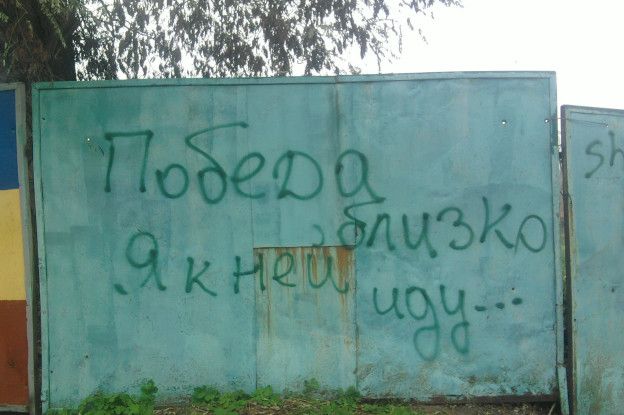 Победа
близко
Я к ней иду...
sh